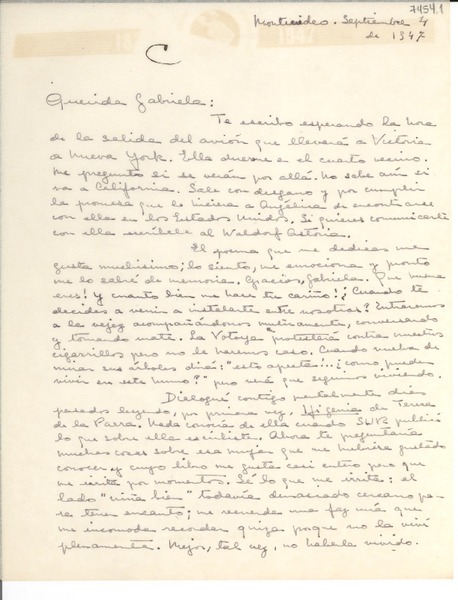 7454.1
Montevideo. Septiembre 4
de 1947
C
Querida Gabriela:
Te escribo esperando la hora
de la salida del avión que llevará a Victoria
a Nueva York. Ella duerme en el cuarto vecino.
Me pregunto si se verán por allá. No sabe aún si
va a California. Sale con desgano y por cumplir
la promesa que le hiciera a Angélica de encontrarse
con ella en los Estados Unidos. Si quieres comunicarte
con ella escríbele al Waldorf Astoria.
El poema que me dedicas me
gusta muchísimo; lo siento, me emociona y pronto
me lo sabré de memoria. Gracias, Gabriela. Qué buena
eres! Y cuanto bien me hace tu cariño! ¿Cuando te
decides a venir a instalarte entre nosotros? Entraremos
a la vejez acompañándonos mutuamente, conversando
y tomando mate. La "Votoya" protestará contra nuestros
cigarrillos pero no le haremos caso. Cuando vuelva de
mirar sus árboles dirá: "esto apesta... ¿como pueden
vivir en este humo?" pero verá que seguimos viviendo.
Dialogué contigo mentalmente días
pasados leyendo, por primera vez, Ifigenia de Teresa
de la Parra. Nada conocía de ella cuando SUR publicó
lo que sobre ella escribiste. Ahora te preguntaría
muchas cosas sobre esa mujer que me hubiera gustado
conocer y cuyo libro me gusta casi entero pero que
me irrita por momentos. Sé lo que me irrita: el
lado "niña bien" todavía demasiado cercano pa-
ra tener encanto; me recuerda una faz mía que
me incomoda recordar quizás porque no la viví
plenamente. Mejor, tal vez, no haberla vivido.